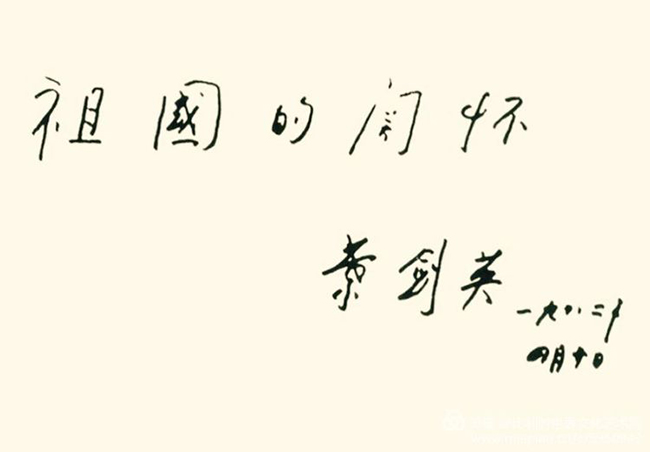 祖國的関怀
葉剑英
一九八二年
四月十日